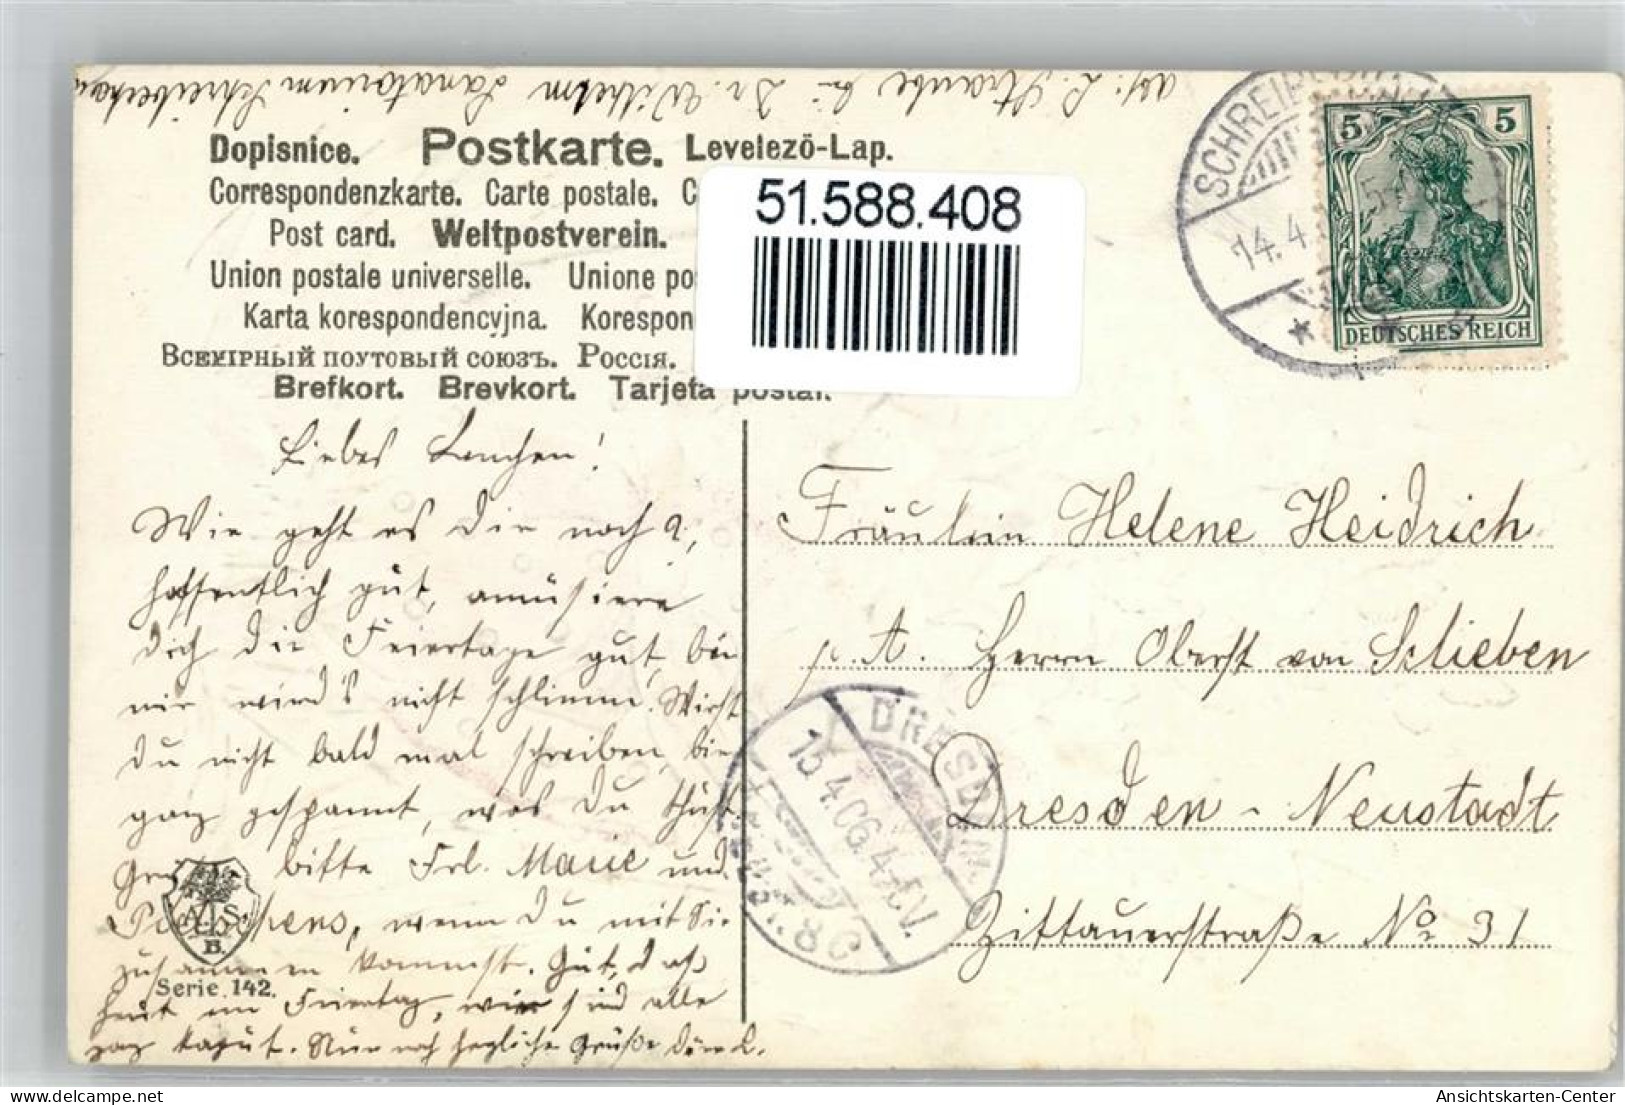 abs: L. Straube b. Dr. Wilhelm Sanatorium Schreiberhau
Dopisnice. Postkarte. Levelező-Lap.
Correspondenzkarte. Carte postale. C
Post card. Weltpostverein.
Union postale universelle. Unione po
Karta korespondencyjna. Korespon
Всемірный поутовый союзъ. Россія.
Brefkort. Brevkort. Tarjeta postal.
51.588.408
SCHREIBERHAU
14.4.
5 5
DEUTSCHES REICH
Liebes Lenchen!
Wie geht es Dir noch?,
hoffentlich gut, amüsiere
Dich die Feiertage gut, bei
mir wird's nicht schlimm. Wirst
Du nicht bald mal schreiben, bin
ganz gespannt, was Du thust.
Grüße bitte Frl. Marie und
wenn Du mit Sie
zusammen kommst. Gut, daß
heut ein Feiertag, wir sind alle
ganz kaput. Nun noch herzliche Grüße Deine L.
A. S.
B.
Serie 142.
Fräulein Helene Heidrich
p. A. Herrn Oberst von Schlieben
Dresden - Neustadt
Zittauerstraße No 31
DRESDEN
15.4.06.4-5V.
8c
Ansichtskarten-Center
delcampe.net